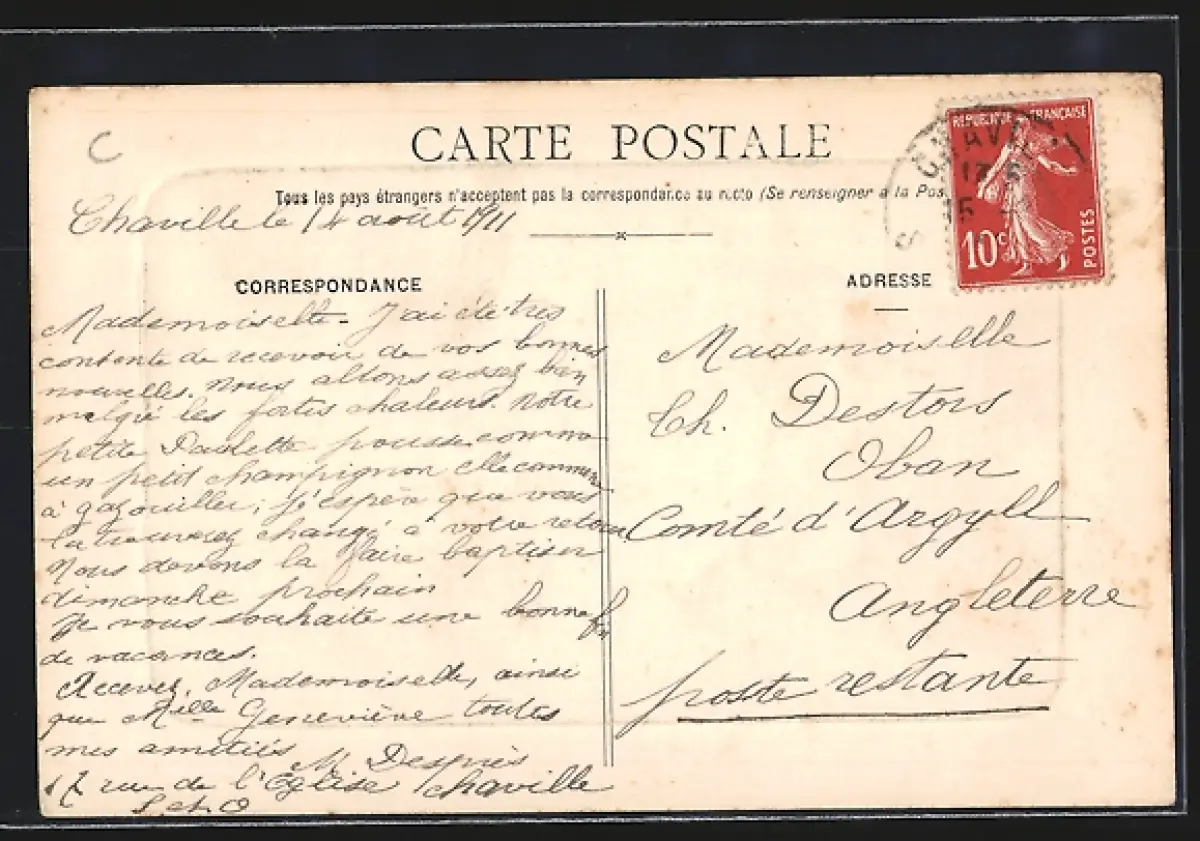 C
CARTE POSTALE
Tous les pays étrangers n'acceptent pas la correspondance au recto (Se renseigner à la Pos
Chaville le 14 août 1911
REPUBLIQUE FRANÇAISE
10c
POSTES
CORRESPONDANCE
Mademoiselle - J'ai été très
contente de recevoir de vos bonnes
nouvelles. Nous allons assez bien
malgré les fortes chaleurs. Notre
petite Paulette pousse comme
un petit champignon elle commence
à gazouiller, j'espère que vous
la trouverez changé à votre retour
Nous devons la faire baptiser
dimanche prochain
Je vous souhaite une bonne fin
de vacances.
Recevez, Mademoiselle, ainsi
que Mlle Geneviève toutes
mes amitiés
M. Després
17 rue de l'Église Chaville
S. et O
ADRESSE
Mademoiselle
Ch. Destors
Oban
Comté d'Argyll
Angleterre
poste restante